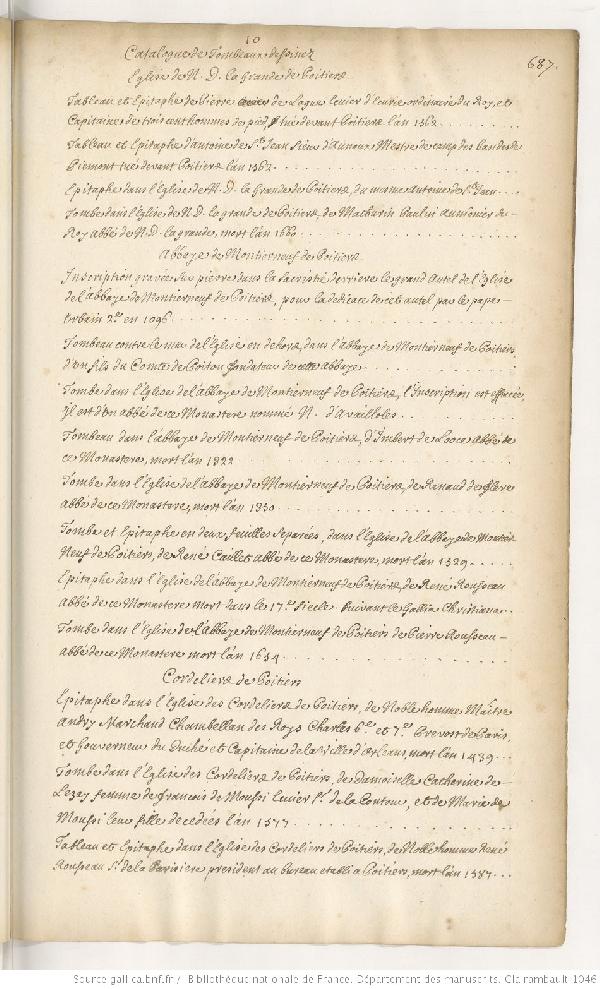 10
687.
Catalogue de Tombeaux dessinez
Eglise de N. D. la Grande de Poitiers
Tableau et Epitaphe de Pierre de Logue Ecuier d'Ecurie ordinaire du Roy, et
Capitaine de trois cent hommes de pied, tué devant Poitiers l'an 1562
Tableau et Epitaphe d'antoine de St. Jean Sieur d'Annoux Mestre de camp des bandes de
Piemont tué devant Poitiers l'an 1562
Epitaphe dans l'Eglise de N. D. la Grande de Poitiers, du mesme Antoine de St. Jean
Tombe dans l'Eglise de N. D. la grande de Poitiers, de Mathurin Paului Aumonier du
Roy Abbé de N. D. la grande, mort l'an 1660
Abbaye de Montierneuf de Poitiers
Inscription gravée sur pierre dans la sacristie derriere le grand Autel de l'Eglise
de l'abbaye de Montierneuf de Poitiers, pour la dedicace de cet autel par le pape
Urbain 2e. en 1096
Tombeau contre le mur de l'Eglise en dehors, dans l'abbaye de Montierneuf de Poitiers
d'Un fils du Comte de Poitou fondateur de cette abbaye
Tombe dans l'Eglise de l'abbaye de Montierneuf de Poitiers, l'Inscription est effacée,
Il est d'un abbé de ce Monastere nommé N. d'Availloles
Tombeau dans l'abbaye de Montierneuf de Poitiers, d'Imbert de Abbé de
ce Monastere, mort l'an 1322
Tombe dans l'Eglise de l'abbaye de Montierneuf de Poitiers, de Renaud de
abbé de ce Monastere, mort l'an
Tombe et Epitaphe en deux feuilles separées, dans l'Eglise de l'abbaye de Montier
Neuf de Poitiers, de René Caillet abbé de ce Monastere, mort l'an 1529
Epitaphe dans l'Eglise de l'abbaye de Montierneuf de Poitiers, de René Rousseau
Abbé de ce Monastere mort dans le 17e. siecle suivant le Gallia Christiana
Tombe dans l'Eglise de l'Abbaye de Montierneuf de Poitiers de Pierre Rousseau
abbé de ce Monastere mort l'an 1654
Cordeliers de Poitiers
Epitaphe dans l'Eglise des Cordeliers de Poitiers, de Noble homme Maitre
Andry Marchand Chambellan des Roys Charles 6e. et 7e. Prevost de Paris
et Gouverneur du Duché et Capitaine de la Ville d'Orleans, mort l'an 1439
Tombe dans l'Eglise des Cordeliers de Poitiers, de Damoiselle Catherine de
Lezay femme de Francois de Moussi Ecuier Sr. de la Contour, et de Marie de
Moussi leur fille decedées l'an 1577
Tableau et Epitaphe dans l'Eglise des Cordeliers de Poitiers, de Noble homme René
Rousseau Sr. de la Parisiere president au bureau etabli a Poitiers, mort l'an 1587
Source gallica.bnf.fr / Bibliothèque nationale de France. Département des manuscrits. Clairambault 1046